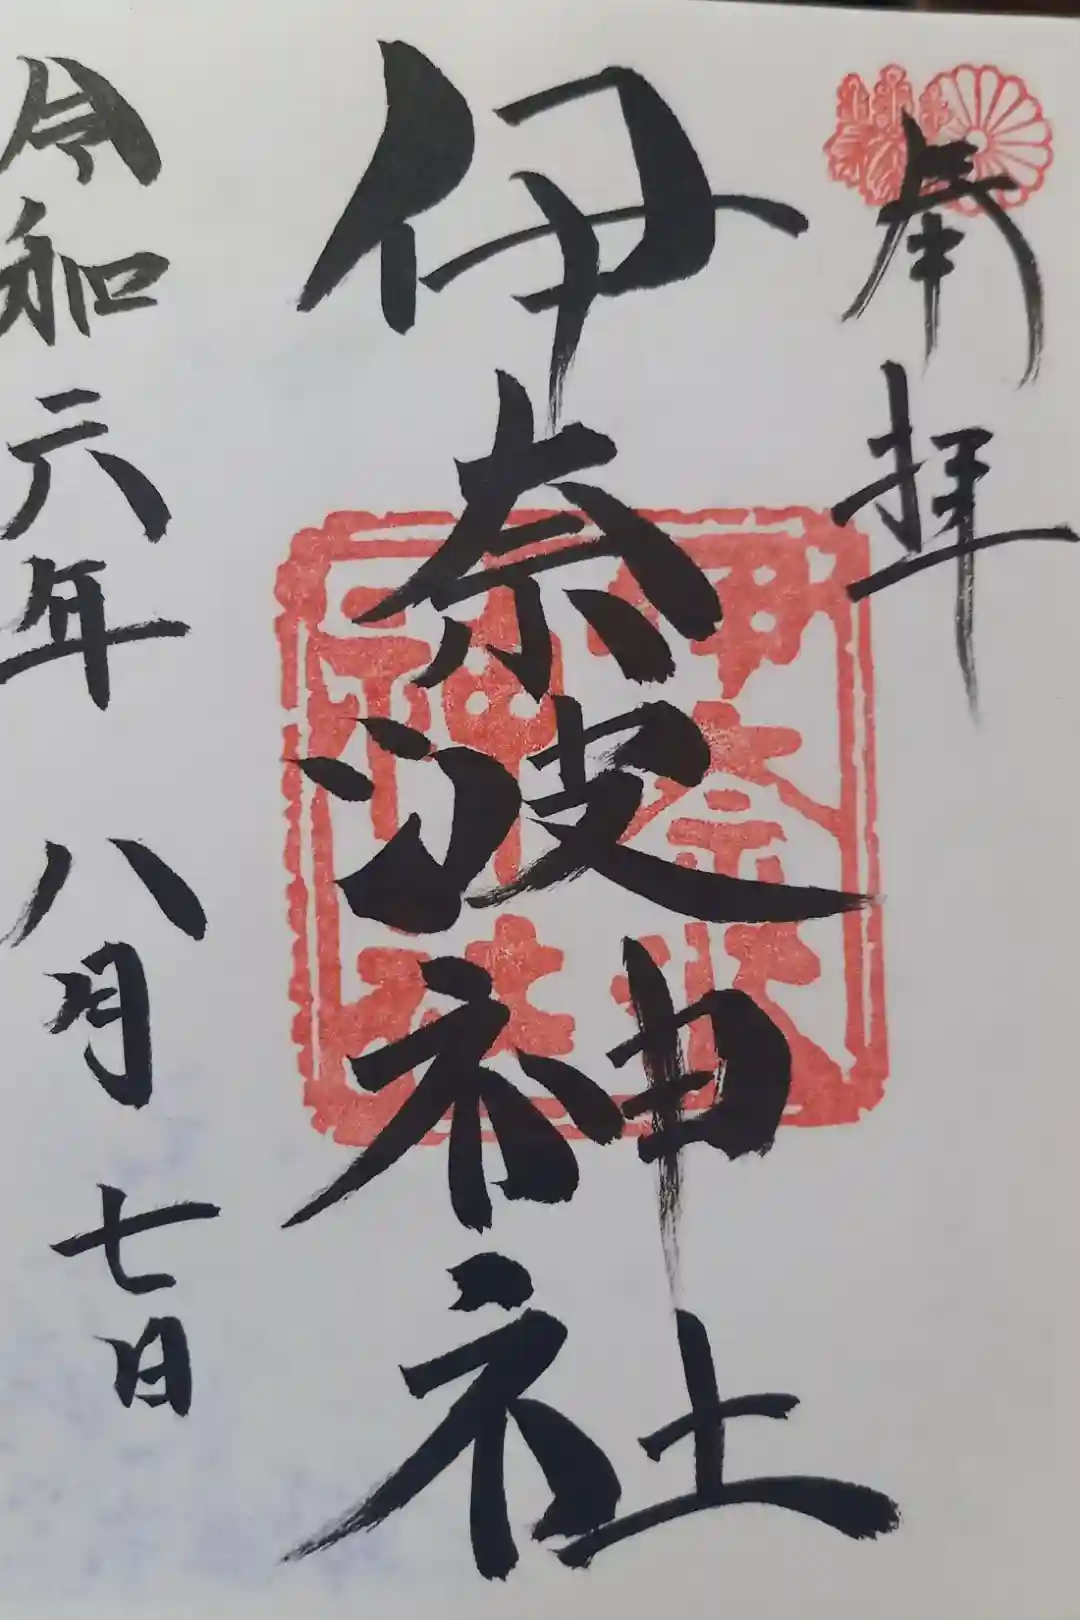 奉拝
伊奈波神社
伊奈波
神社
令和六年 八月 七日